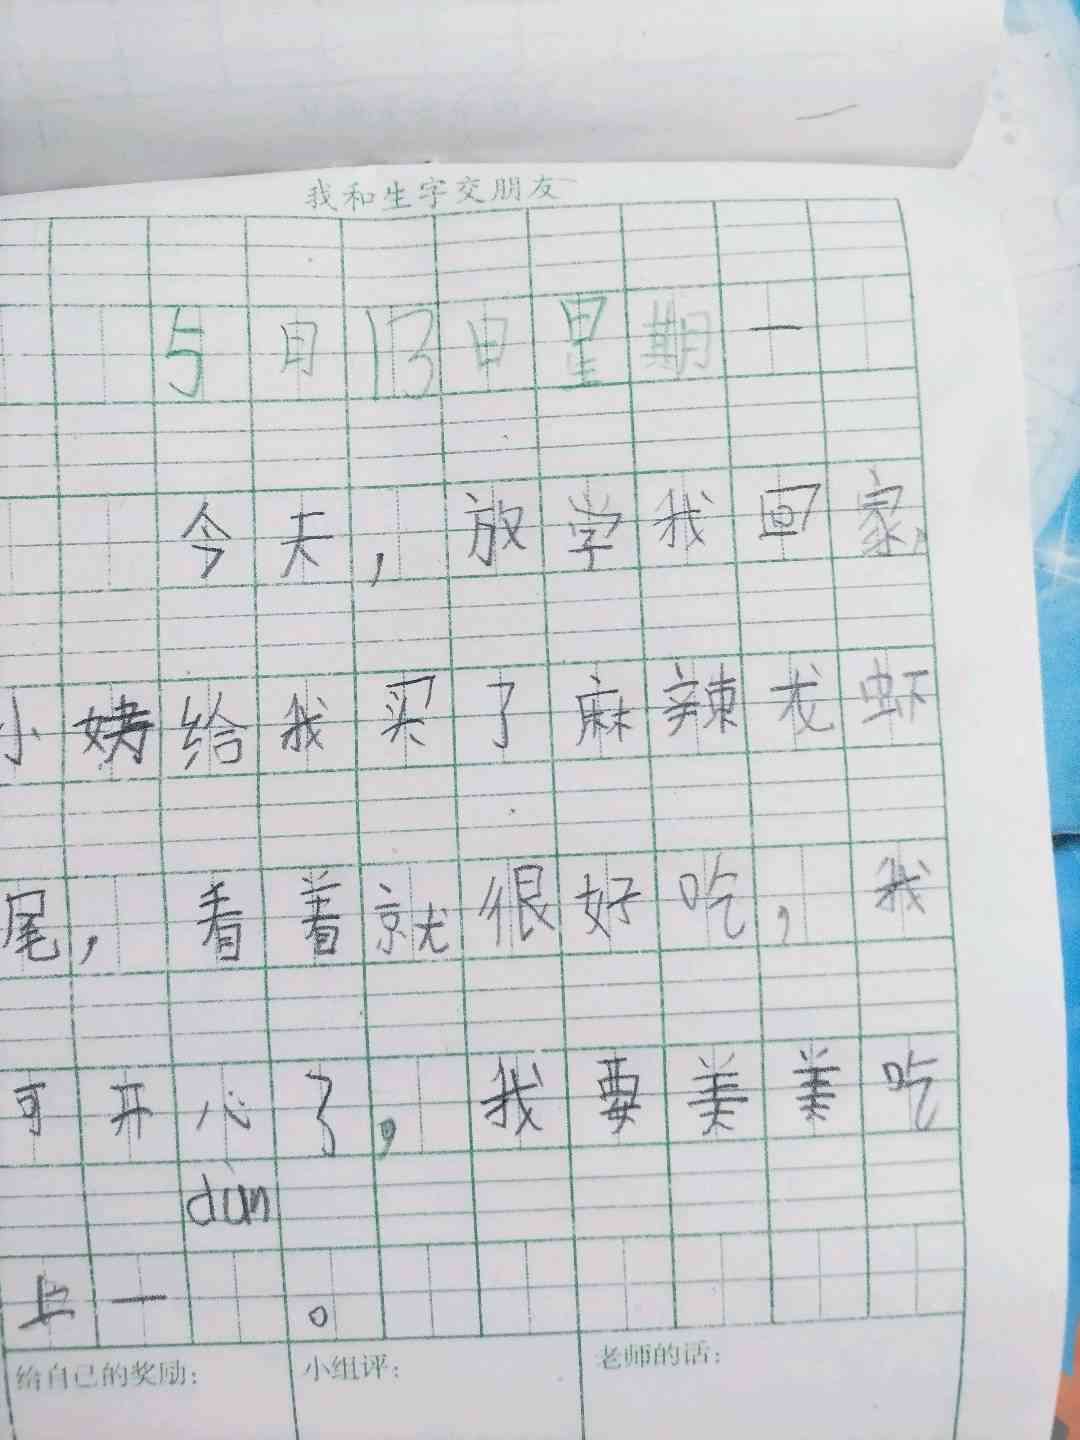 我和生字交朋友
5月13日星期一
今天，放学我回家，
小姨给我买了麻辣龙虾
尾，看着就很好吃，我
可开心了，我要美美吃
dùn
上一 。
给自己的奖励： 小组评： 老师的话：